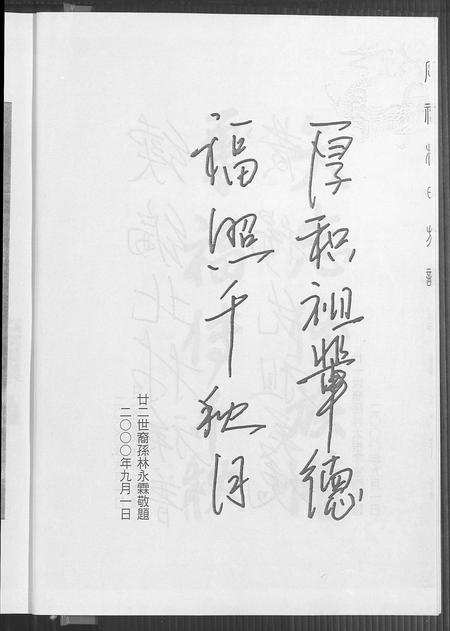 厚积祖辈德
福照千秋月
廿二世裔孫林永霖敬題
二〇〇〇年九月一日